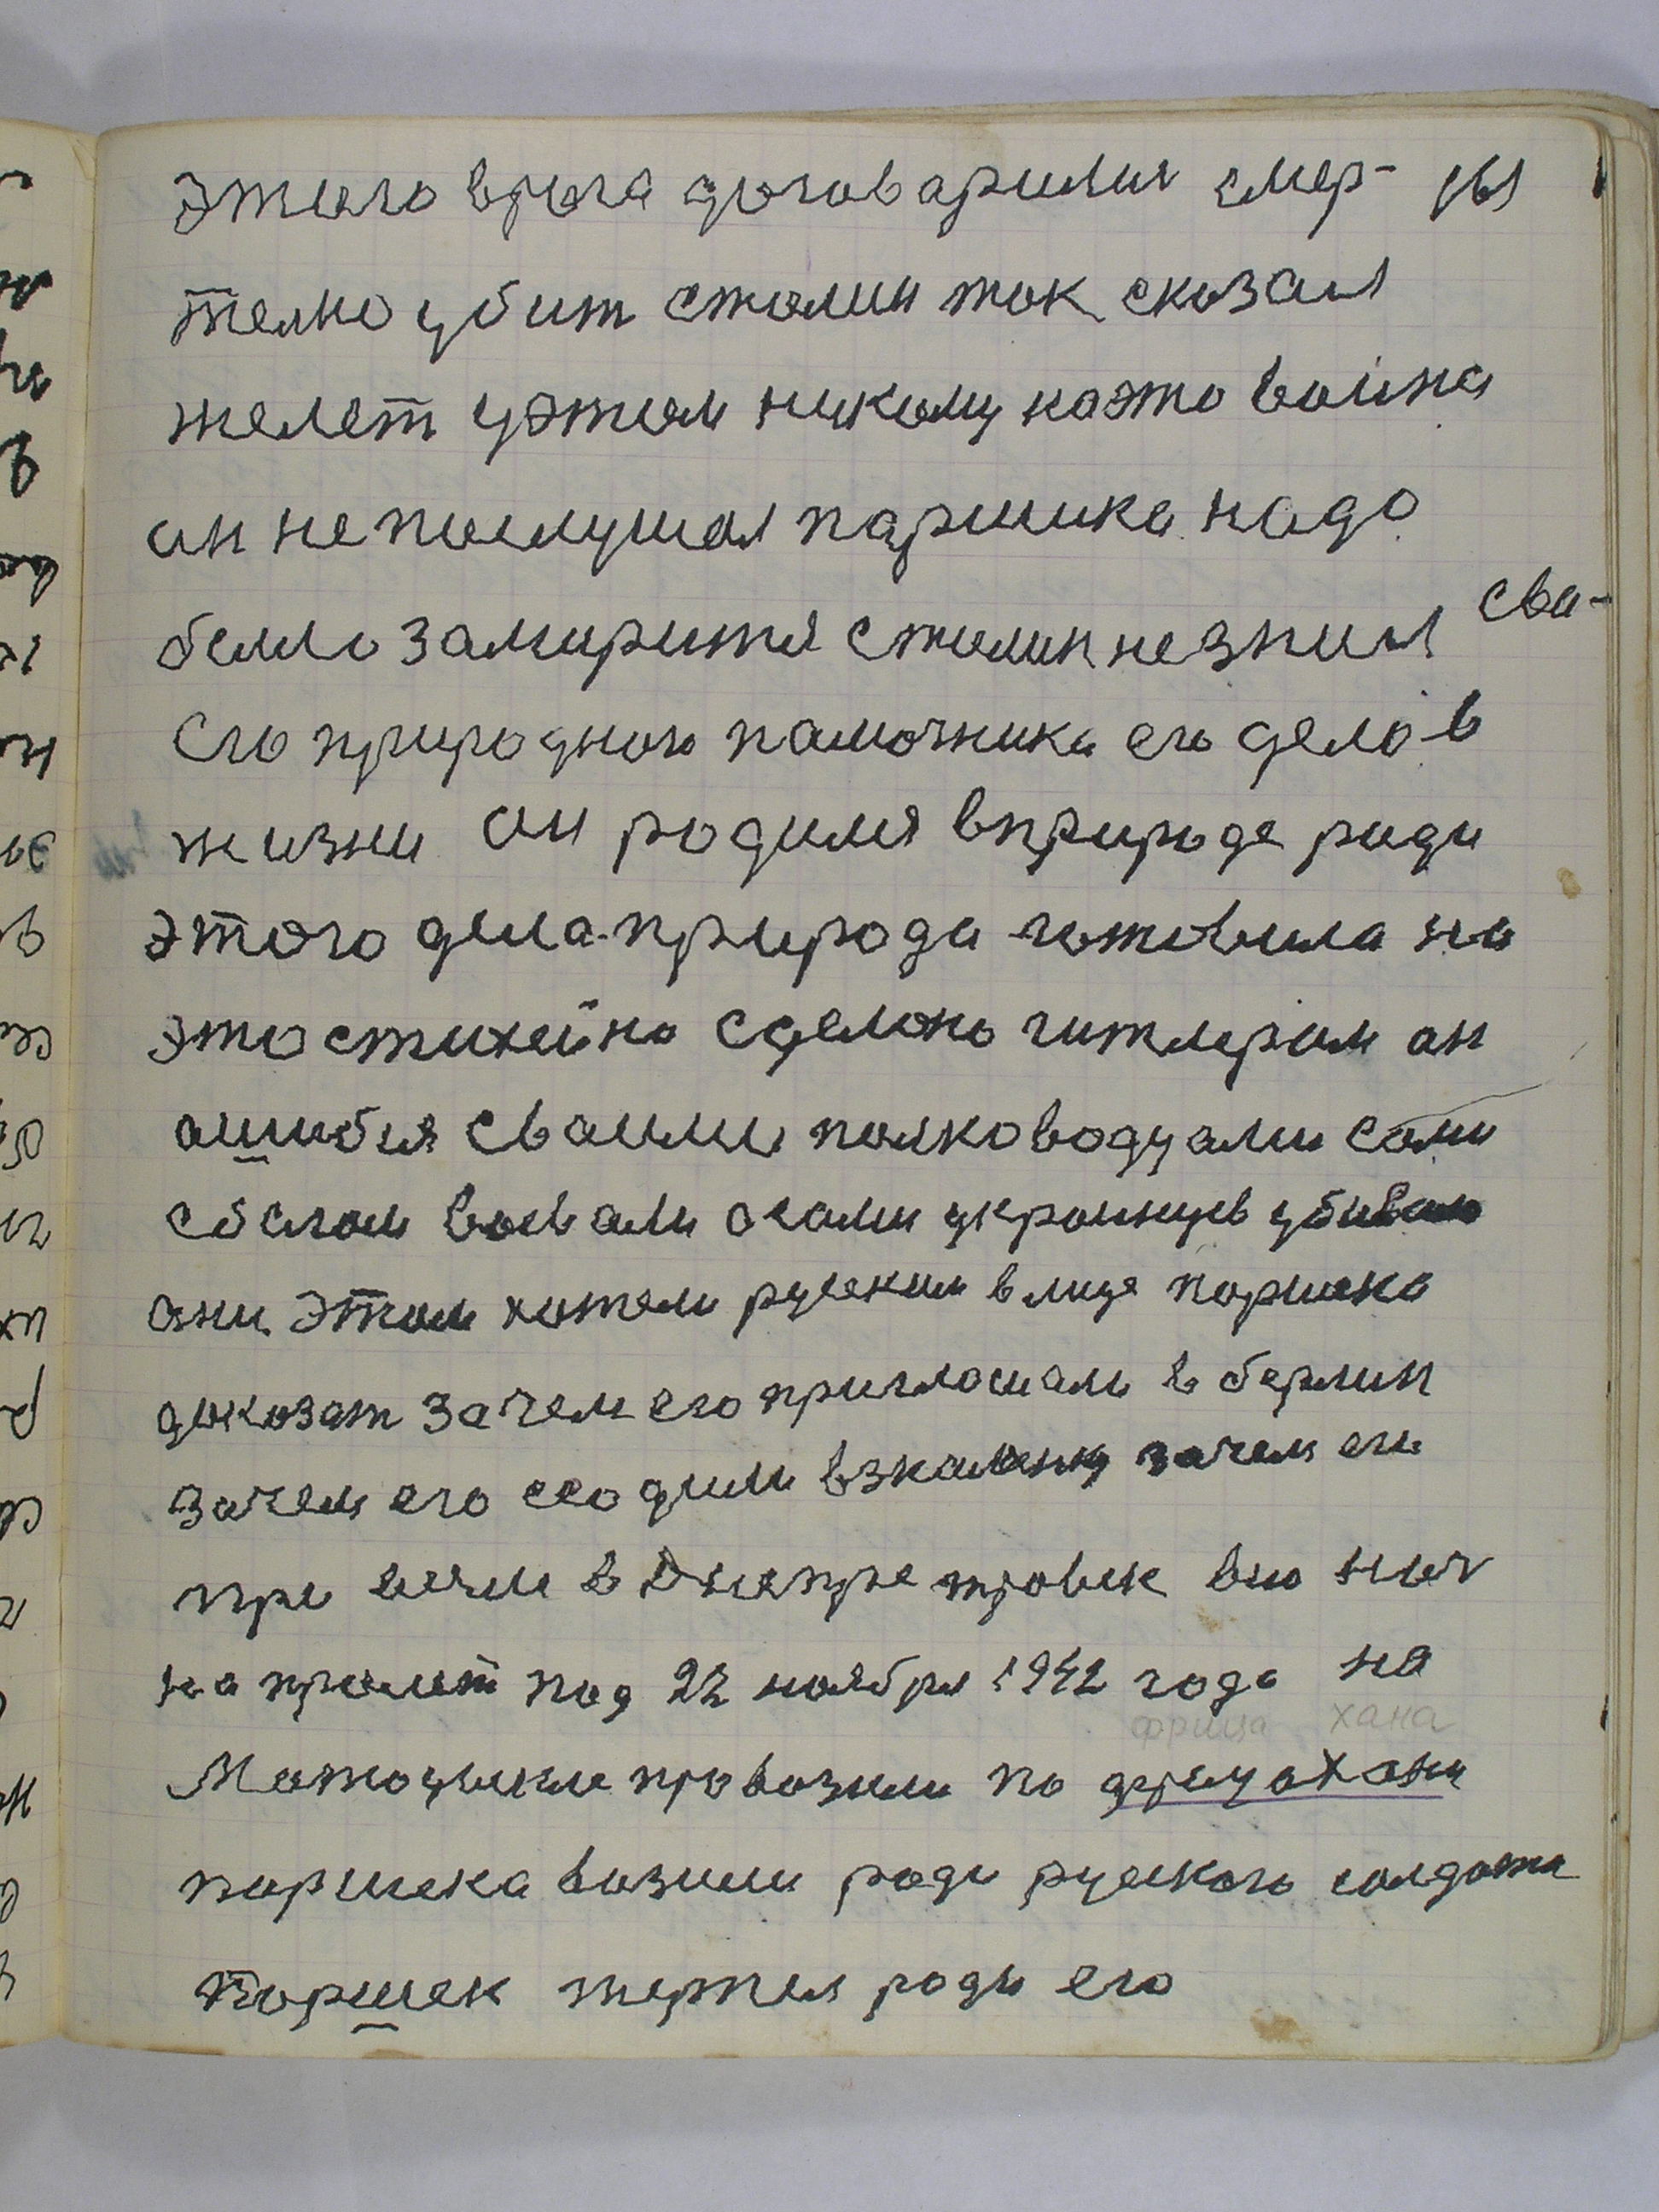 этого врага договарилися смер- 161
телно убит сталин так сказал
желет уэтом никому каэто война
ан не послушал паршика надо
было замиритя сталин незнал сва-
его природного памочника его дела в
жизни он родился вприроде ради
этого дела природа готовила на
это стихейно сделано гитлером ан
ашибся сваими полководцами сами
сбогом воевали асами украинцев убивали
ани этом хотели руским в лице паршека
доказат зачем его приглошали в берлин
зачем его сводили зачем его
при везли в Днепре тровск всю ноч
на пролет под 22 ноября 1942 года на
фрица хана
Матоцикле провозили по
паршека возили ради руского солдата
Паршек терпел ради его